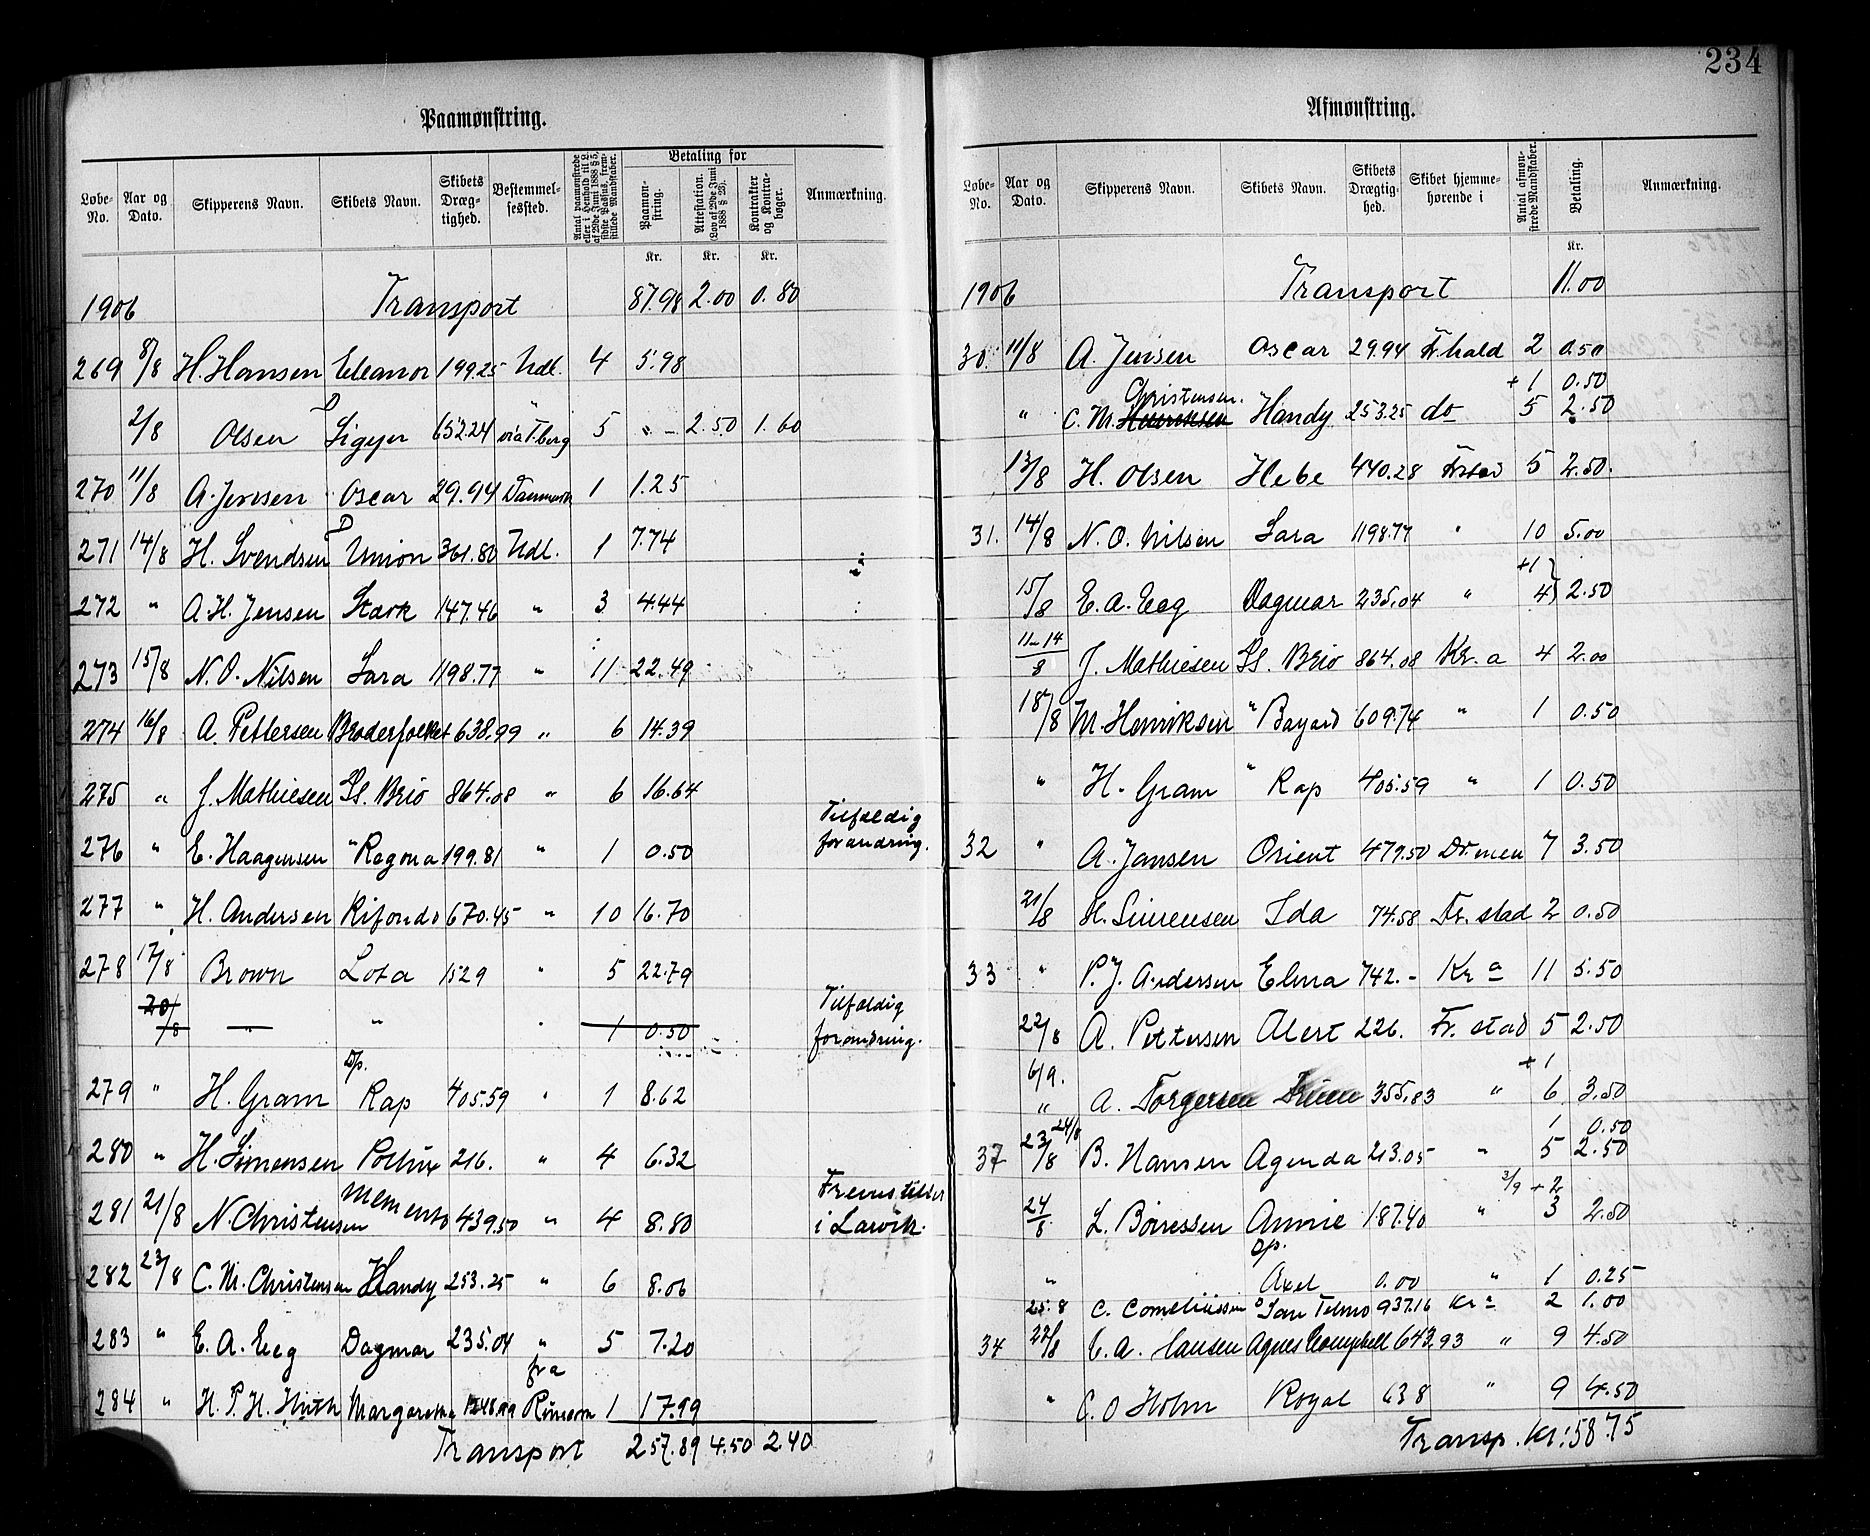 234
Paamønstring.
Løbe-No. Aar og Dato. Skipperens Navn. Skibets Navn. Skibets Dræg-tighed. Bestemmel-sessted. Antal paamønstrede eller i Henhold til L. af 29de Juni 1888 § 5, sidste Passus, frem-stillede Mandskaber. Betaling for Paamøn-string. Attestation. (Lov af 29de Juni 1888 § 23). Kontrakter og Kontra-bøger. Anmærkning.
Kr. Kr. Kr.
1906 Transport 87.98 2.00 0.80
269 8/8 H. Hansen Eleanor 199.25 Udl. 4 5.98
2/8 Olsen D Sigyn 652.24 " via T.berg 5 " - 2.50 1.60
270 11/8 A. Jensen Oscar 29.94 Danmark 1 1.25
271 14/8 H. Svendsen D Union 361.80 Udl. 1 7.74
272 " A. H. Jensen Stærk 147.46 " 3 4.44
273 15/8 N. O. Nilsen Sara 1198.77 " 11 22.49
274 16/8 A. Pettersen Broderfolket 638.99 " 6 14.39
275 " J. Mathiesen Ss. Brio 864.08 " 6 16.64
276 " E. Haagensen " Ragna 199.81 " 1 0.50 Tilfældig forandring.
277 " H. Andersen Rifondo 670.45 " 10 16.70
278 17/8 Brown Lota 1529 " 5 22.79
20/8 " " " 1 0.50 Tilfældig forandring.
279 " H. Gram D/p. Rap 405.59 " 1 8.62
280 " H. Simensen Pollux 216. " 4 6.32
281 21/8 N. Christensen Memento 439.50 " 4 8.80 Fremstillet i Larvik.
282 23/8 C. M. Christensen Handy 253.25 " 6 8.06
283 " E. A. Eeg Dagmar 235.04 " 5 7.20
284 " H. P. H. Huth Margaretha fra 1 17.99
Transport 257.89 4.50 2.40
Afmønstring.
Løbe-No. Aar og Dato. Skipperens Navn. Skibets Navn. Skibets Drægtig-hed. Skibet hjemme-hørende i Antal afmøn-strede Mandskaber. Betaling. Anmærkning.
Kr.
1906 Transport 11.00
30. 11/8 A. Jensen Oscar 29.94 Fr.hald 2 0.50
+ 1 0.50
" C. M. Henriksen Christensen. Handy 253.25 do 5 2.50
13/8 H. Olsen Hebe 440.28 Frstad 5 2.50.
31. 14/8 N. O. Nilsen Sara 1198.77 " 10 5.00
+1
15/8 E. A. Eeg Dagmar 235.04 " 4 2.50
11-14/8 J. Mathiesen Ss. Brio 864.08 Kr. a 4 2.00
18/8 M. Henriksen " Bayard 609.74 " 1 0.50
" H. Gram " Rap 405.59 " 1 0.50
32 " A. Jansen Orient 479.50 Dr.men 7 3.50
21/8 H. Simensen Ida 74.58 Fr. stad 2 0.50
33 " P. J. Andersen Elma 742.- Kr a 11 5.50
22/8 A. Pettersen Alert 226. Fr. stad 5 2.50
6/9. + 1
" A. Torgersen 355.83 " 6 3.50
24/8 1 0.50
37 23/8 B. Hansen Agenda 213.05 " 5 2.50
3/9 + 2
24/8 L. Børressen Annie 187.40 " 3 2.50
" Dp. Axel 0.00 " 1 0.25
25.8 C. Corneliussen D San Telmo 937.16 Kr a 2 1.00
34 27/8 C. A. Hansen Agnes Campbell 643.93 " 9 4.50
" C. O Holm Royal 638 " 9 4.50
Transp. Kr: 58.75